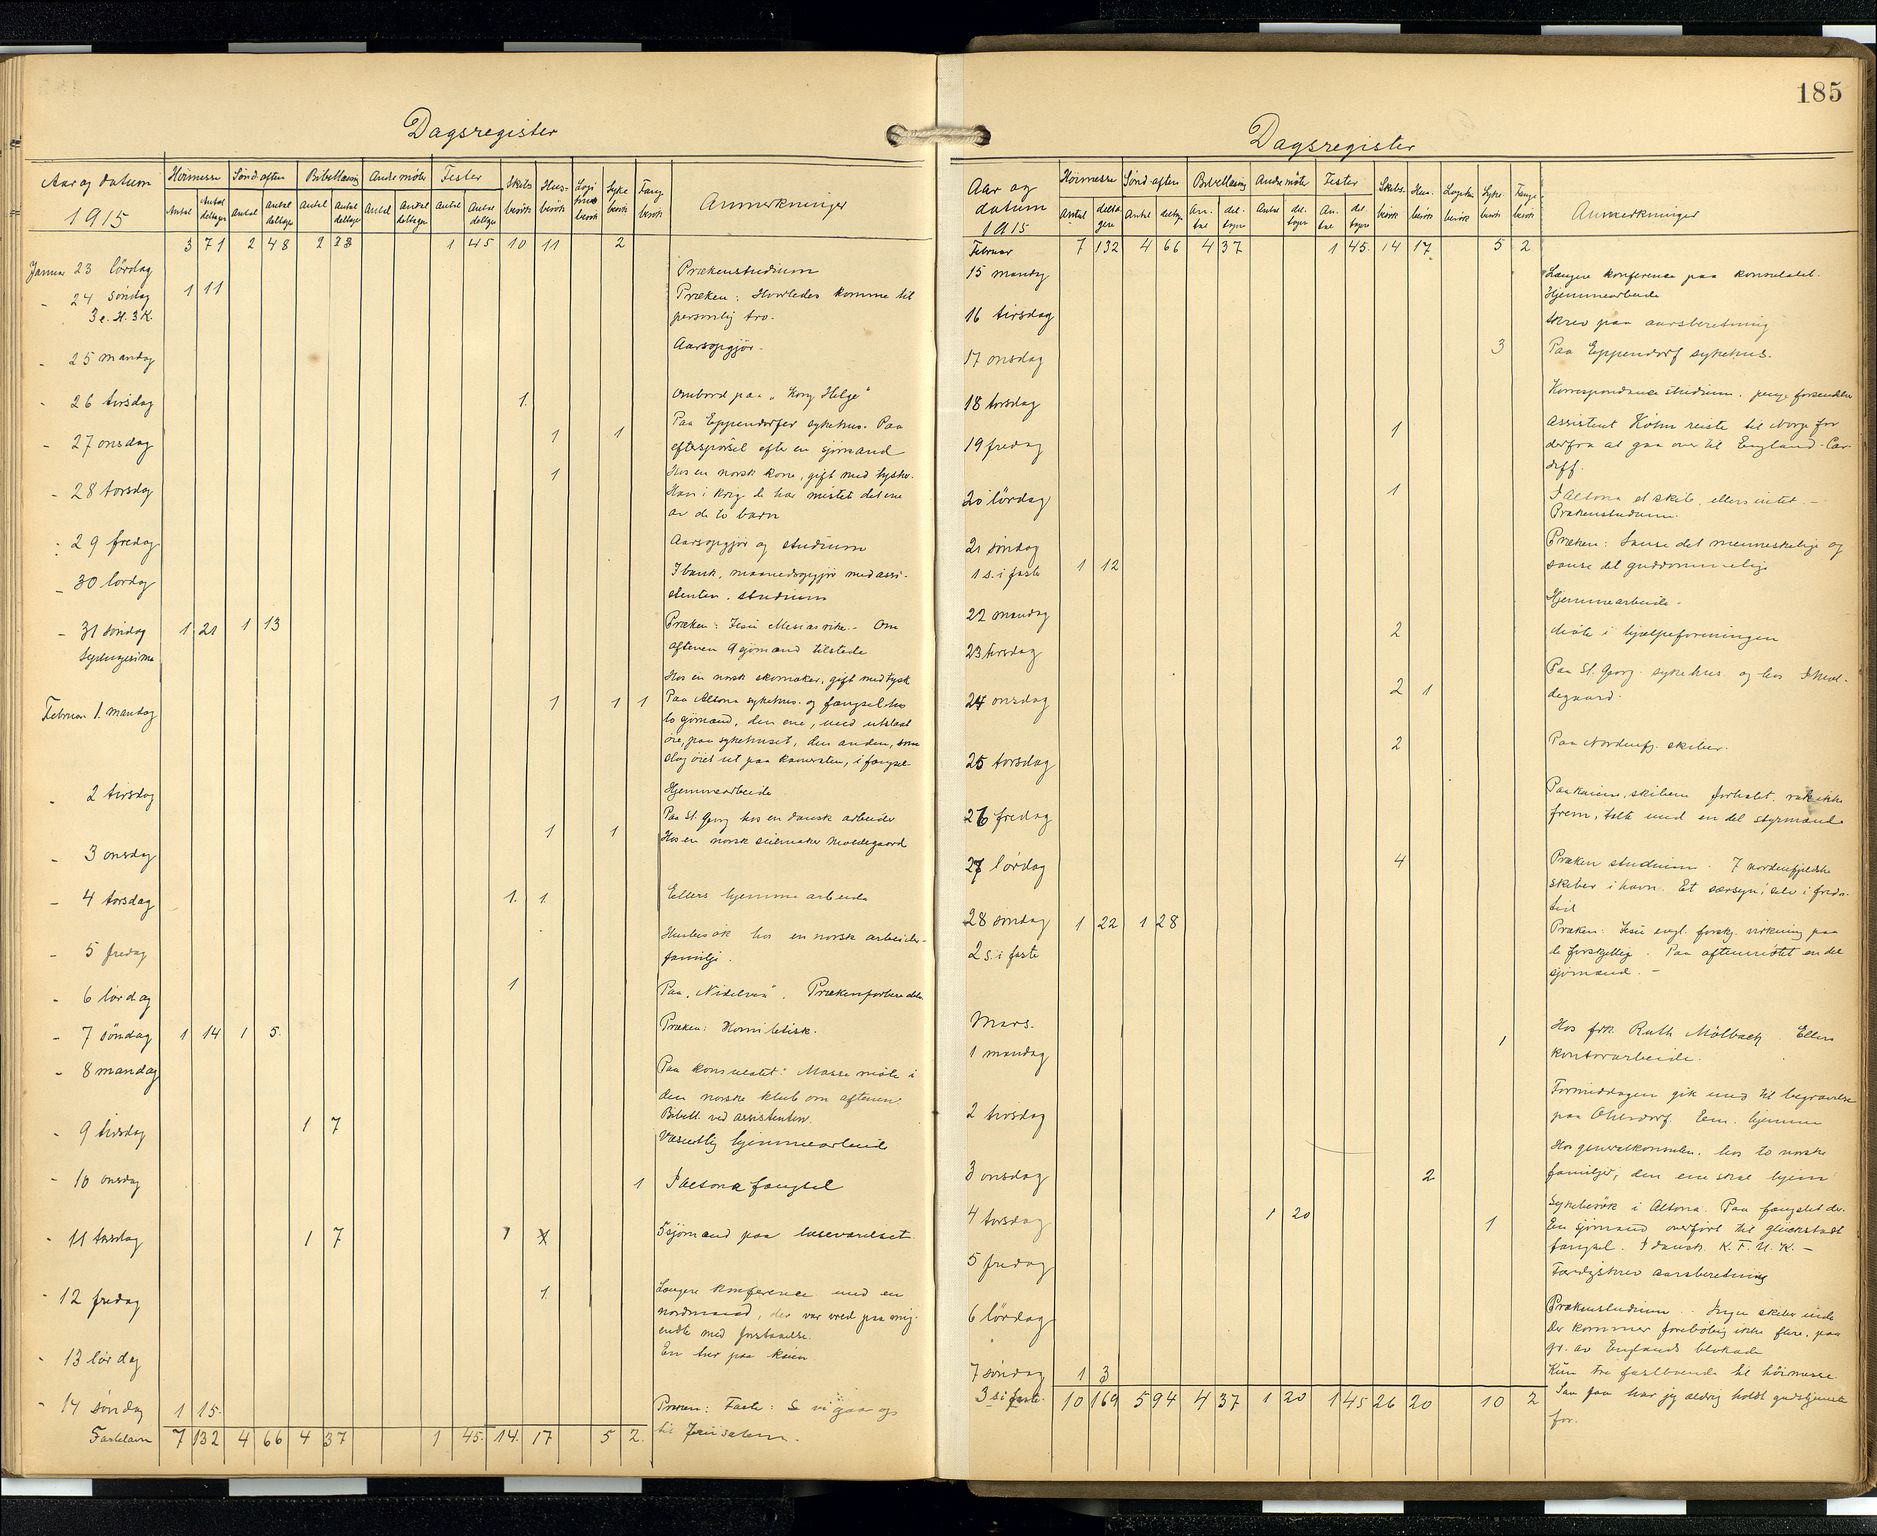 Dagsregister
Aar og datum
1915
Høimesse Sønd. aften Bibellæsng Andre møter Fester Skibs besøk Hus- besøk Logi besøk Syke besøk Fang besøk Anmerkninger
Antal Antal deltager Antal Antal deltager Antal Antal deltager Antal Antal deltager Antal Antal deltager
3 71 2 48 2 23 1 45 10 11 2
Januar 23 lördag Prækenstudium
" 24 söndag 1 11 Præken: Hvorledes komme til
3 e. H. 3 K. personlig tro.
" 25 mandag Aarsopgjør.
" 26 tirsdag 1. Ombord paa "Kong Helge"
" 27 onsdag 1 1 Paa Eppendorfer sykehus. Paa
efterspörsel efter en sjømand
" 28 torsdag 1 Hos en norsk kone, gift med tysker.
Han i krig de har mistet det ene
av de to barn
" 29 fredag Aarsopgjør og studium
" 30 lördag I bank, maanedsopgjør med assi-
stenten. studium
" 31 söndag 1 21 1 13 Præken: Jesu Messiasrike. - Om
Septuagesima aftenen 9 sjømænd tilstede
Hos en norsk skomaker, gift med tysk
Februar 1. mandag 1 1 1 Paa Altona sykehus og fængsel hos
to sjömænd, den ene, med utslaat
øie, paa sykehuset, den anden, som
slog øiet ut paa kameraten, i fængsel
" 2 tirsdag Hjemmearbeide
" 3 onsdag 1 1 Paa St. Georg hos en dansk arbeider
Hos en norsk seilmaker Moldegaard
" 4 torsdag 1. 1. Ellers hjemme arbeide
" 5 fredag Husbesøk hos en norsk arbeider-
familje.
" 6 lördag 1 Paa "Nidelven". Prækenforberedelse
" 7 söndag 1 14 1 5. Præken: Homiletisk.
" 8 mandag Paa konsulatet: Masse møte i
den norske klub om aftenen
" 9 tirsdag 1 7 Bibell. ved assistenten.
Væsentlig hjemmearbeide
" 10 onsdag 1 I Altona fængsel
" 11 torsdag 1 7 1 5 sjømænd paa læseværelset
" 12 fredag 1. Længere konference med en
nordmand, der var vred paa mig.
endte med forstaaelse.
" 13 lördag En tur paa kaien
" 14 söndag 1 15. Præken: Faste: Se vi gaar op
Fastelavn 7 132 4 66 4 37 1 45. 14. 17 5 2. til Jerusalem.
185
Dagsregister
Aar og datum
1915
Høimesse Sønd-aften Bibellæsng Andre møter Fester Skibs. besøk Hus. besøk besøk Syke. besøk Fange besøk Anmerkninger
Antal deltagere Antal deltag An-tal del. tagere Antal del. tagere An. tal del. tagere
Februar 7 132 4 66 4 37 1 45. 14 17. 5 2
15 mandag Længere konference paa konsulatet.
Hjemmearbeide
16 tirsdag Skrev paa aarsberetning
17 onsdag 3 Paa Eppendorf sykehus.
18 torsdag Korrespondance studium. penge forsendelse
19 fredag 1 Assistent Kølm reiste til Norge for
derfra at gaa over til England - Car-
diff.
20 lördag 1 I Altona et skib, ellers intet. -
Prækenstudium.
21 söndag 1 12 Præken: Sanse det menneskelige og
1 s. i faste sanse det guddommelige
22 mandag Hjemmearbeide.
23 tirsdag 2 Møte i hjælpeforeningen
24 onsdag 2 1 Paa St. Georg. sykehus og hos
degaard.
25 torsdag 2 Paa Nordenfj. skiber.
26 fredag Paa kaiene, skibene forhalet. rak ikke
frem, talte med en del styrmænd
27 lördag 4 Præken studium. 7 nordenfjeldske
skiber i havn. Et særsyn, selv i freds-
tid
28 söndag 1 22 1 28 Præken: Jesu evgl. forskj. virkning paa
2 s. i faste de forskjellige. Paa aftenmøtet en del
sjømænd. -
Mars.
1 mandag 1 Hos frk. Ruth Mölbach. Ellers
kontorarbeide.
2 tirsdag Formiddagen gik med til begravelse
paa Ohlsdorf. Em. hjemme
3 onsdag 2 Hos generalkonsulen. hos to norske
familjer, den ene skal hjem
4 torsdag 1 20 1 Sykebesøk i Altona. Paa fængslet der.
En sjømand overført til Glückstadt
fængsel. I dansk K.F.U.K. -
5 fredag Færdigskrev aarsberetning
6 lördag Prækenstudium. Ingen skiber inde
Der kommer foreløbig ikke flere, paa
gr. av Englands blokade
7 söndag 1 3 Kun tre fastboende til höimesse.
3 s. i faste. 10 169 5 94 4 37 1 20 1 45 26 20 10 2 Saa faa har jeg aldrig holdt gudstjeneste
for.